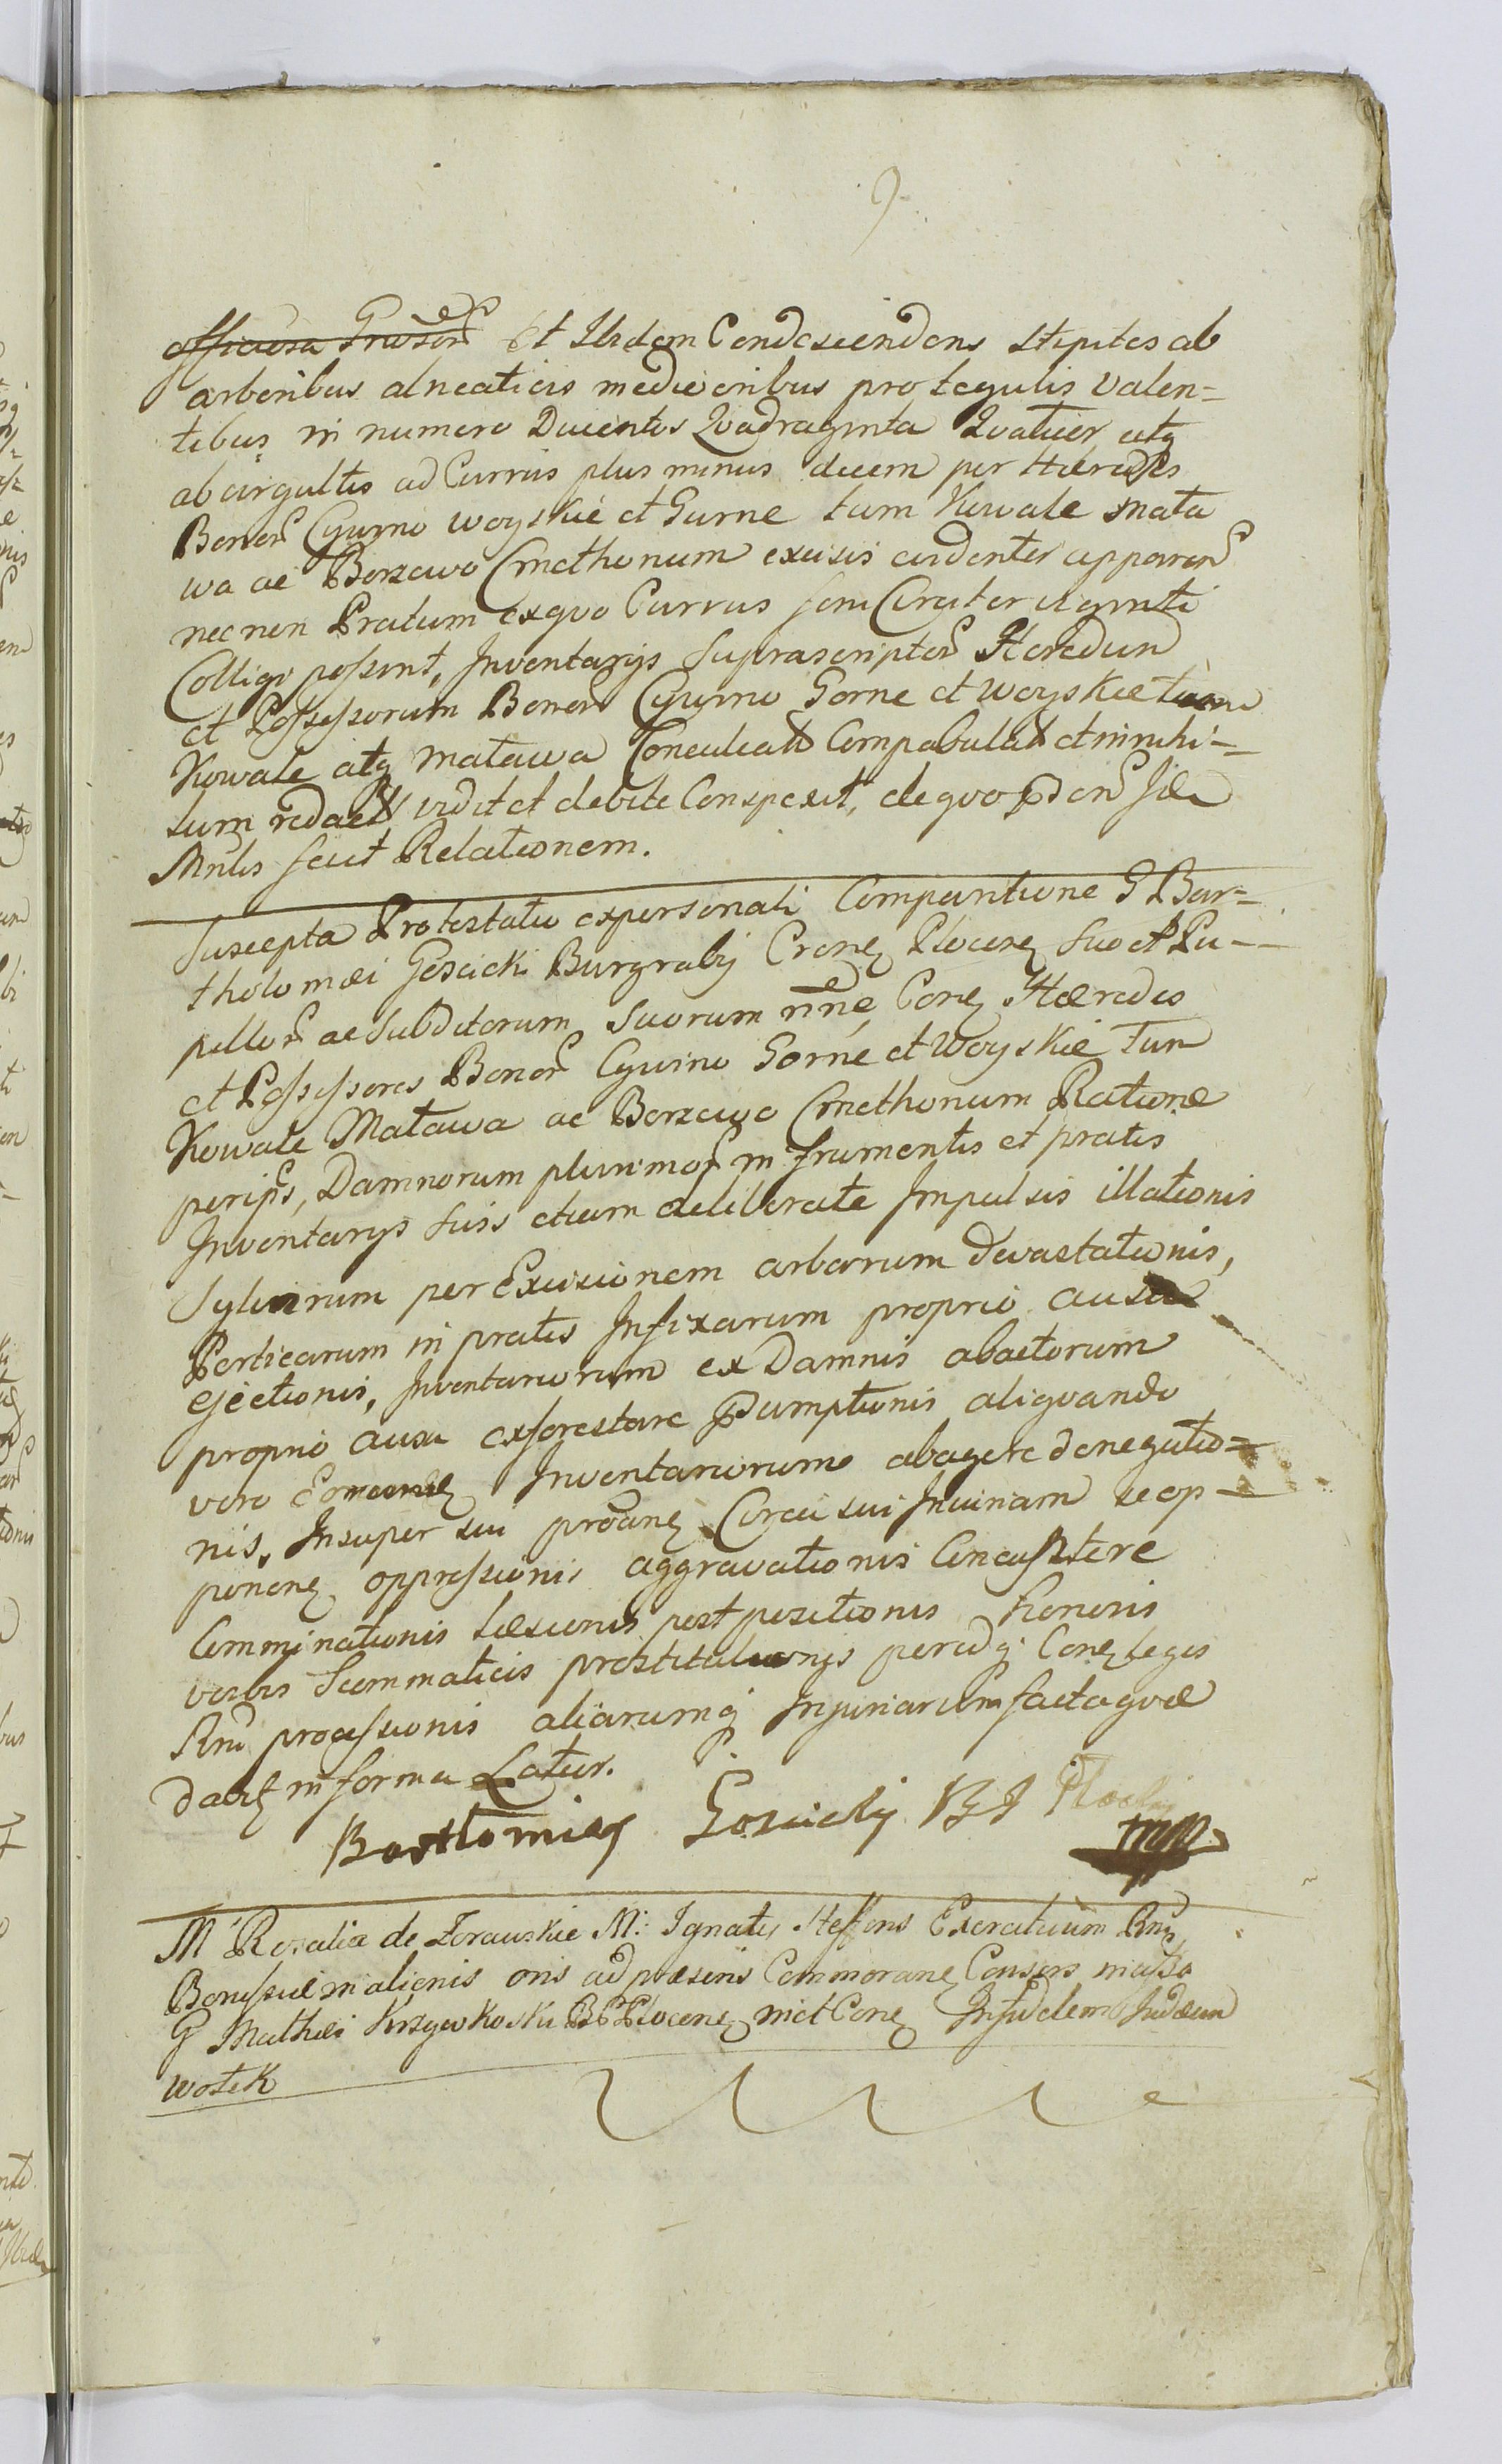 9.
officiosa Et Ibidem Condescendens stipites ab
arboribus alneaticis medioeribus pro tegulis valen=
tibus in numero Ducentos Quadraginta Quatuor atq
ab virgultis ad Currus plus minus decem per Hæredes
Bonor Cywino woyskie et Gurne tum Kowale Mata
wa ac Borzewo Cmethonum excisis evidenter apparen
nec non Pratum ex quo Currus feni Circiter viginti
Colligi possent, Inventarys Suprascriptor Heredum
et Possessorum Bonor Cywino Gorne et Woyskie tum
Kowale atq Matawa Conculcatt Compabulatt et in nihi=
lum redact vidit et debite Conspexit, de quo
Mnlis fecit Relationem.
Suscepta Protestatio ex personali Comparitione G Bar=
tholomæi Goscicki Burgraby Crane Plocen Suo et Pu-
pillor ac Subditorum Suorum nne Con Hæredes
et Possessores Bonor Cywino Gorne et Woyskie Tum
Kowale Matawa ac Borzewo Cmethonum Ratione
per ipss, Damnorum plurimor in frumentis et pratis
Inventarys suis etiam deliberate Impulsis illationis
Sylvarum per Excisionem arborum Devastationis,
Perticarum in pratis Infixarum proprio ausu
ejectionis, Inventariorum ex Damnis abactorum
proprio ausu exforestare Dumptionis aliquando
vero Inventariorum abagere denegatio=
nis, Insuper sui Circa sui Iniuriam se op-
ponen oppressionis aggravationis
Comminationis læsionis post positionis honoris
verbis Scommaticis prostitutionis Con leges
Rni processionis aliarumq Injuriarum facta quæ
in forma Latur.
Bartłomiey Goscicky B G Plocky
mpp
M Rosalia de Zorawskie M: Ignaty Steffens Exercituum
Borussiæ in alienis oris ad præsens Commoran Consors
G Mathæi Krzywkoski B G Plocen nict Con Infidelem Judæum
wotek